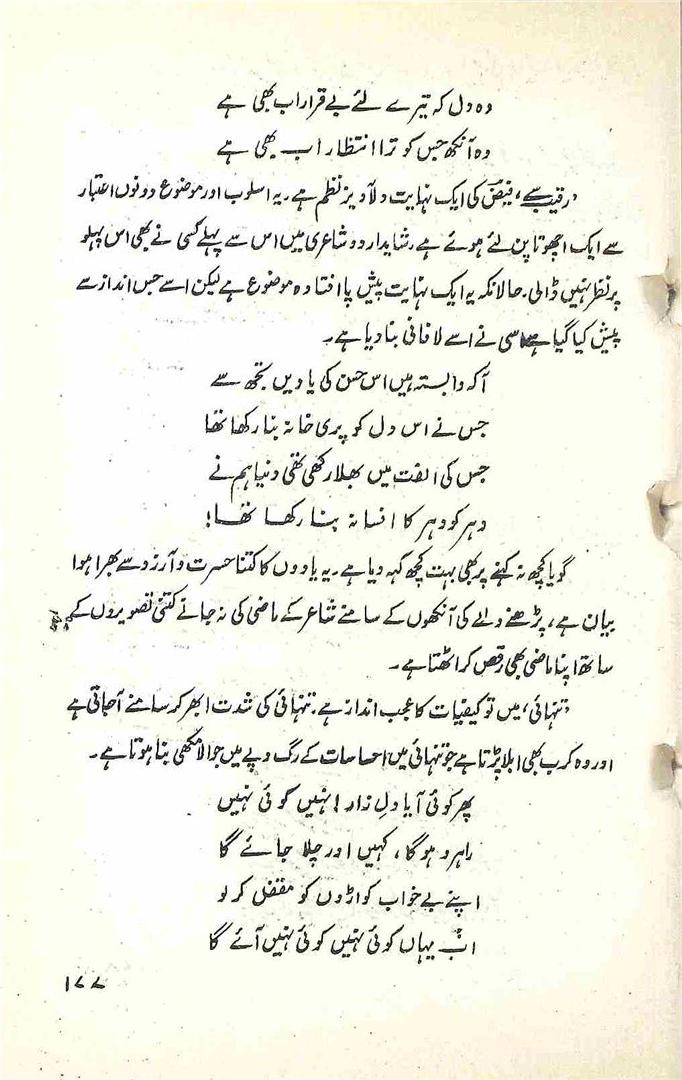 وہ دل کہ تیرے لئے بے قرار اب بھی ہے
وہ آنکھ جس کو ترا انتظار اب بھی ہے
’رقیب سے‘ فیضؔ کی ایک نہایت دلآویز نظم ہے۔ یہ اسلوب اور موضوع دونوں اعتبار
سے ایک اچھوتا پن لئے ہوئے ہے۔ شاید اردو شاعری میں اس سے پہلے کسی نے بھی اس پہلو
پر نظر نہیں ڈالی۔ حالانکہ یہ ایک نہایت پیش پا افتادہ موضوع ہے لیکن اسے جس انداز سے
پیش کیا گیا ہے اسی نے اسے لافانی بنا دیا ہے۔
آکہ وابستہ ہیں اس حسن کی یادیں تجھ سے
جس نے اس دل کو پری خانہ بنا رکھا تھا
جس کی الفت میں بھلا رکھی تھی دنیا ہم نے
دہر کو دہر کا افسانہ بنا رکھا تھا!
گویا کچھ نہ کہنے پر بھی بہت کچھ کہہ دیا ہے۔ یہ یادوں کا کتنا حسرت و آرزو سے بھرا ہوا
بیان ہے، پڑھنے والے کی آنکھوں کے سامنے شاعر کے ماضی کی نہ جانے کتنی تصویروں کے
ساتھ اپنا ماضی بھی رقص کر اٹھتا ہے۔
’تنہائی‘ میں تو کیفیات کا عجب انداز ہے۔ تنہائی کی شدت ابھر کر سامنے آجاتی ہے
اور وہ کرب بھی ابلا پڑتا ہے جو تنہائی میں احساسات کے رگ و پے میں جوالا مکھی بنا ہوتا ہے۔
پھر کوئی آیا دلِ زار! نہیں کوئی نہیں
راہرو ہوگا، کہیں اور چلا جائے گا
اپنے بے خواب کواڑوں کو مقفل کر لو
اب یہاں کوئی نہیں کوئی نہیں آئے گا
۱۷۷